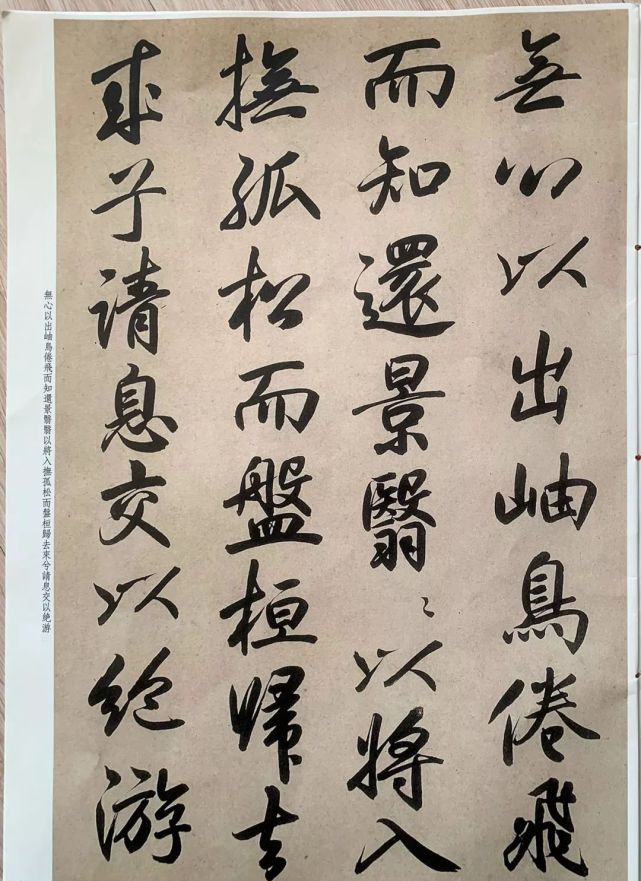 無心以出岫鳥倦飛
而知還景翳〻以將入
撫孤松而盤桓歸去
來兮請息交以絕游
無心以出岫鳥倦飛而知還景翳翳以將入撫孤松而盤桓歸去來兮請息交以絕游